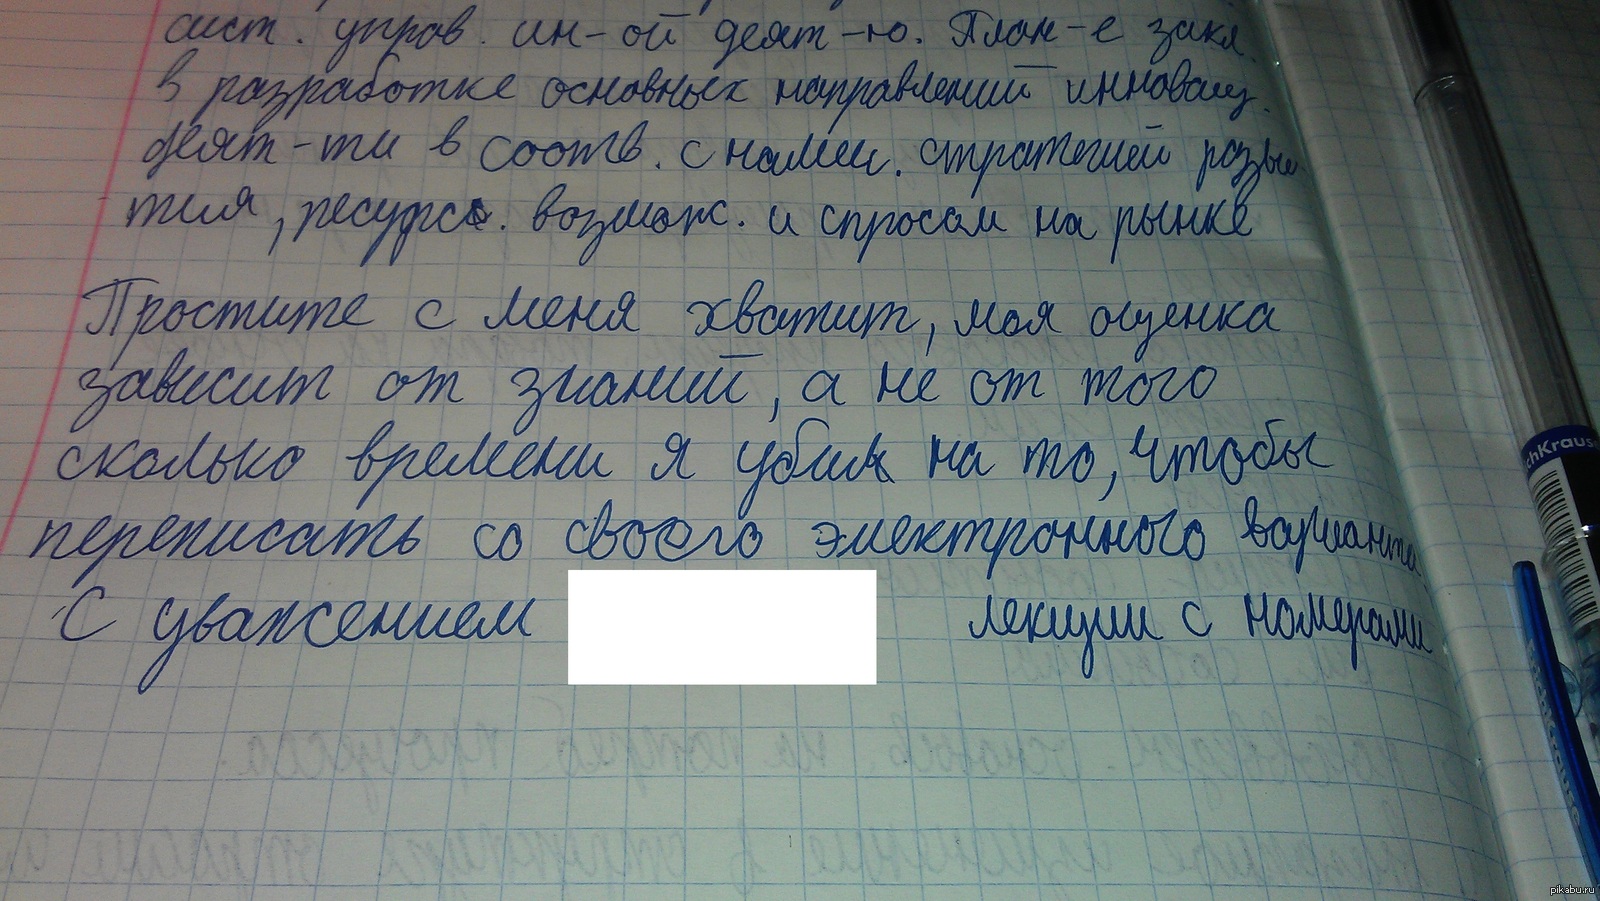 сист. управ. ин-ой деят-ю. План-е закл.
в разработке основных направлений инновац.
деят-ти в соотв. с намеч. стратегией разви-
тия, ресурс. возмож. и спросом на рынке
Простите с меня хватит, моя оценка
зависит от знаний, а не от того
сколько времени я убил на то, чтобы
переписать со своего электронного варианта
С уважением лекции с номерами
chKrause
pikabu.ru